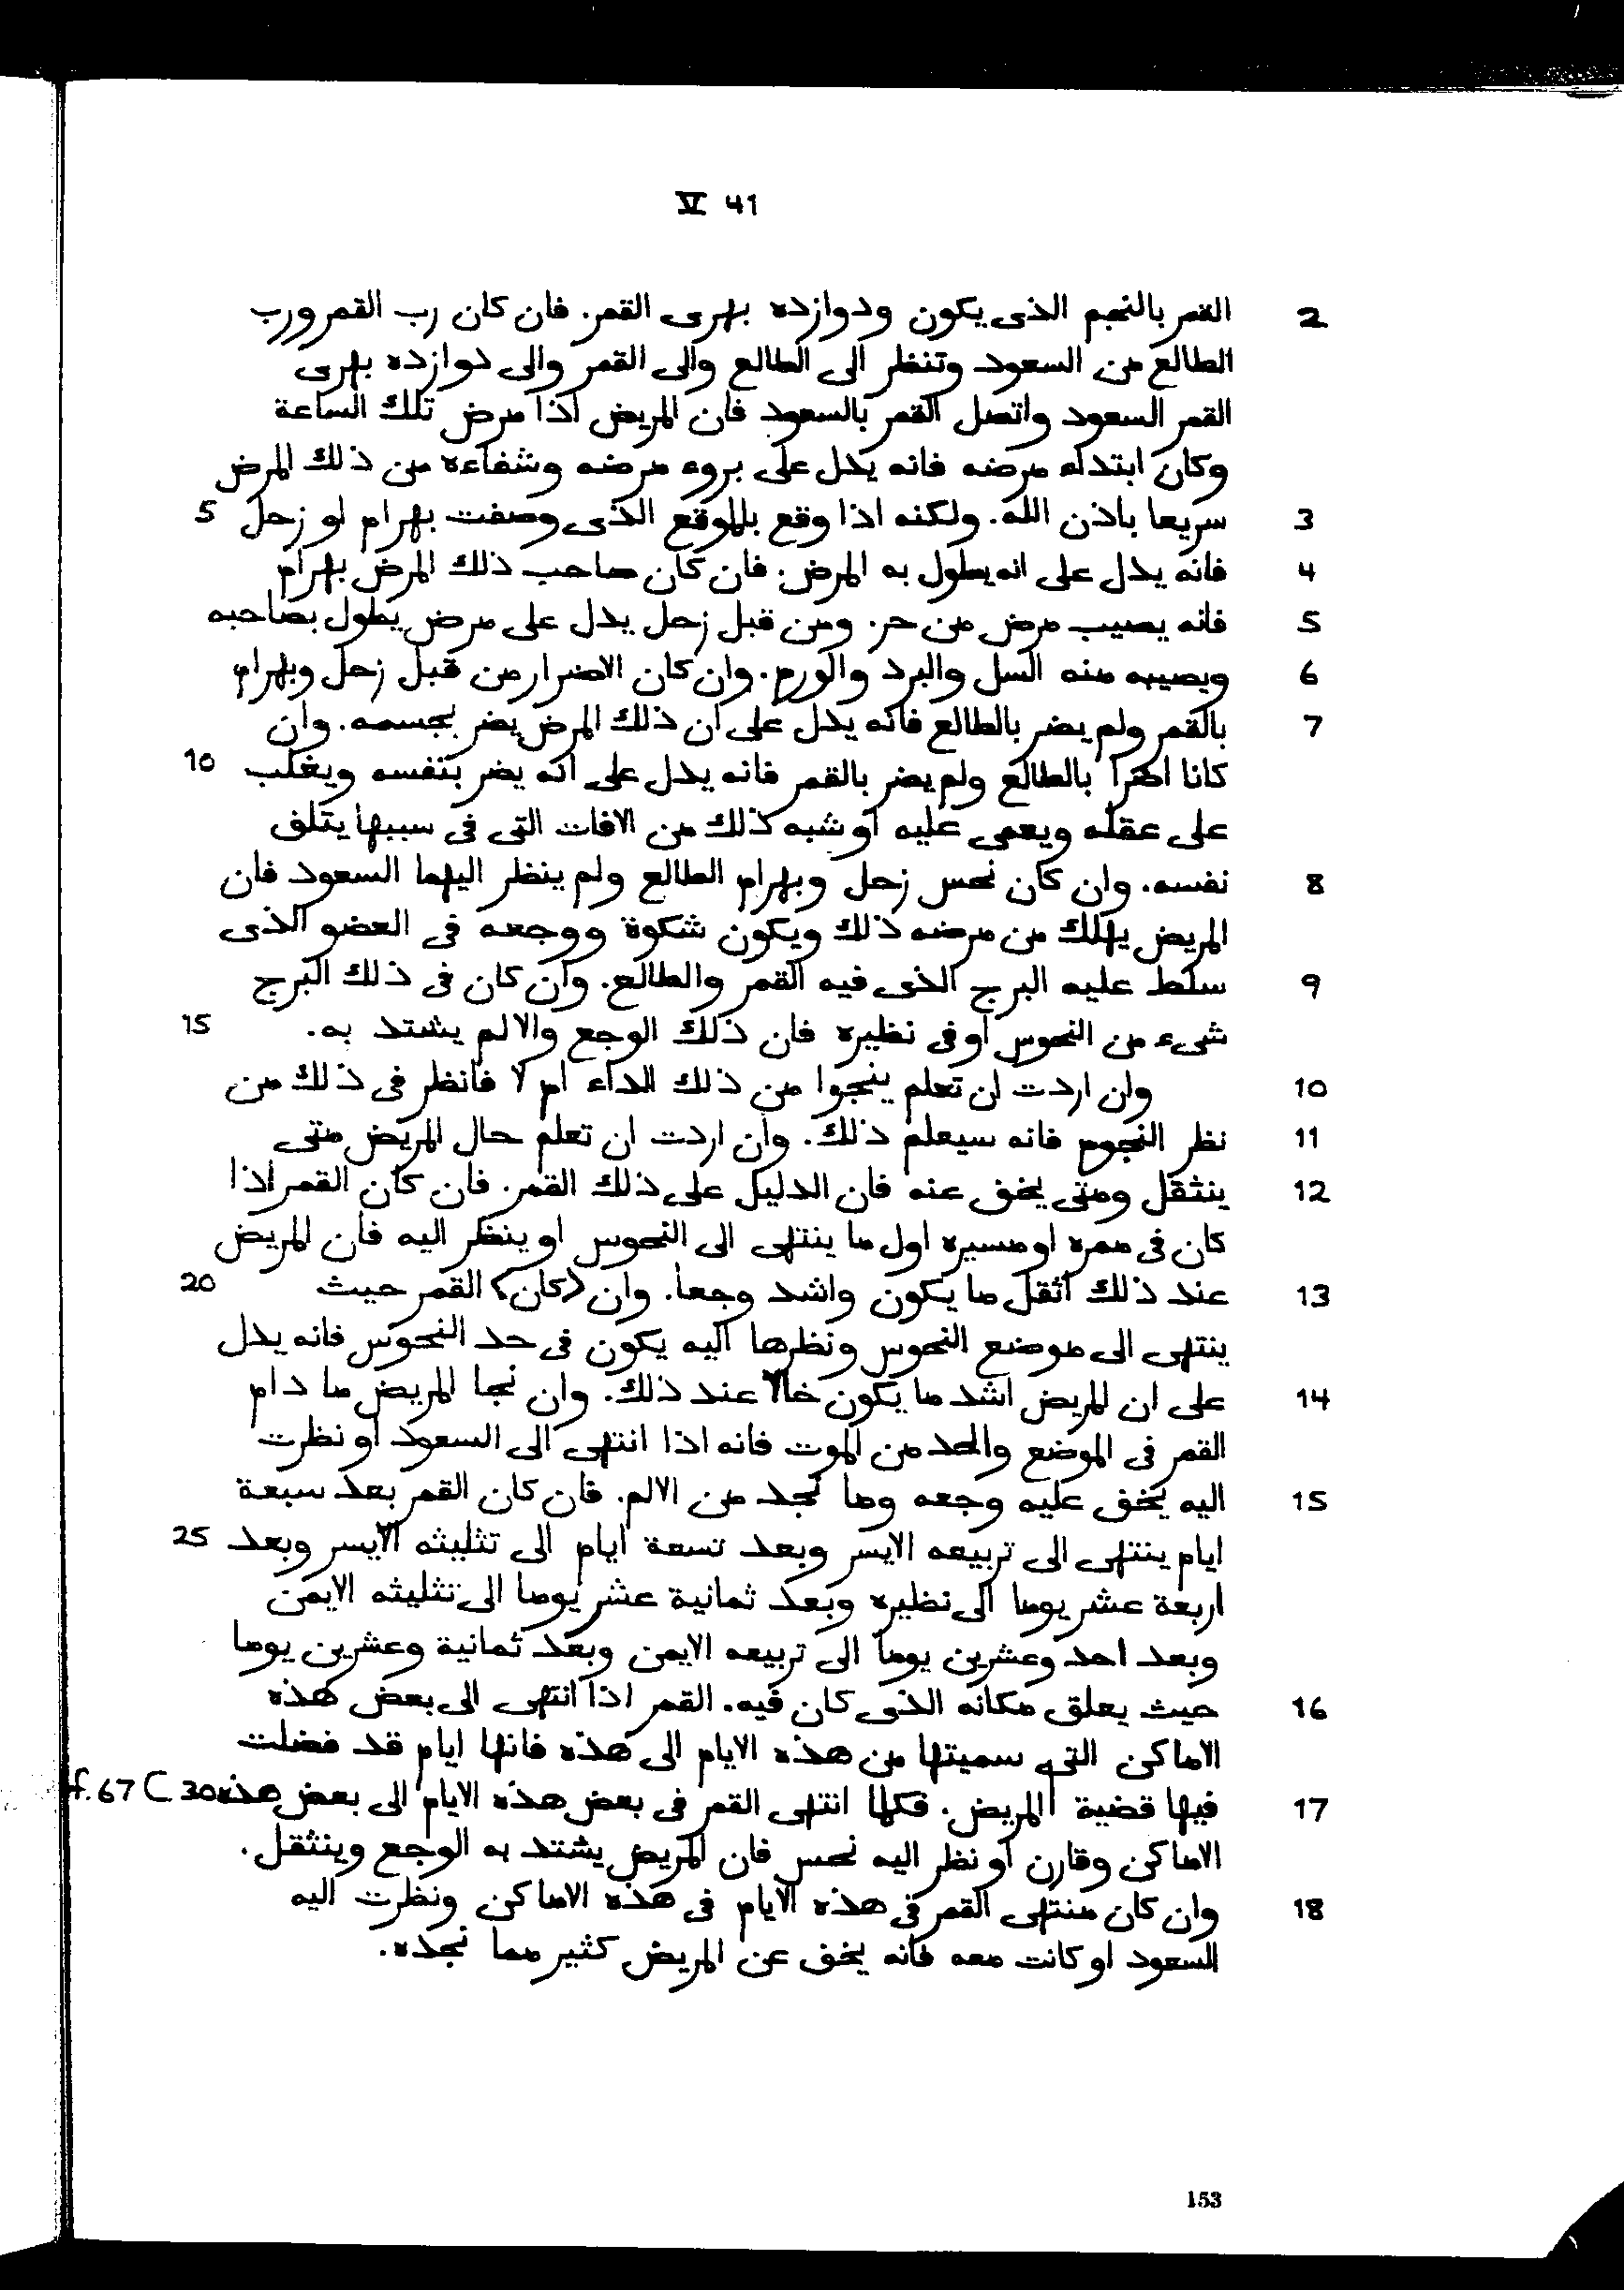 V 41
القمر بالنجم الذى يكون ودوازده بهرى القمر. فان كان رب القمر ورب 2
الطالع من السعود وتنظر الى الطالع والى القمر والى دوازده بهرى
القمر السعود واتصل القمر بالسعود فان المريض اذا مرض تلك الساعة
وكان ابتداء مرضه فانه يدل على بروء مرضه وشفاءه من ذلك المرض
سريعا باذن الله. ولكنه اذا وقع بالموقع الذى وصفت بهرام او زحل 5 3
فانه يدل على انه يطول به المرض. فان كان صاحب ذلك المرض بهرام 4
فانه يصيب مرض من حر. ومن قبل زحل يدل على مرض يطول بصاحبه 5
ويصيبه منه السل والبرد والورم. وان كان الاضرار من قبل زحل وبهرام 6
بالقمر ولم يضر بالطالع فانه يدل على ان ذلك المرض يضر بجسمه. وان 7
كانا اضرا بالطالع ولم يضر بالقمر فانه يدل على انه يضر بنفسه ويغلب 10
على عقله ويعمى عليه او شبه ذلك من الافات التى فى سببها يتلف
نفسه. وان كان نحس زحل وبهرام الطالع ولم ينظر اليهما السعود فان 8
المريض يهلك من مرضه ذلك ويكون شكوة ووجعه فى العضو الذى
سلط عليه البرج الذى فيه القمر والطالع. وان كان فى ذلك البرج 9
شىء من النحوس او فى نظيره فان ذلك الوجع والالم يشتد به. 15
وان اردت ان تعلم ينجوا من ذلك الداء ام لا فانظر فى ذلك من 10
نظر النجوم فانه سيعلم ذلك. وان اردت ان تعلم حال المريض متى 11
ينثقل ومتى يخف عنه فان الدليل على ذلك القمر. فان كان القمر اذا 12
كان فى ممره او مسيره اول ما ينتهى الى النحوس او ينظر اليه فان المريض
عند ذلك اثقل ما يكون واشد وجعا. وان <كان> القمر حيث 20 13
ينتهى الى موضع النحوس ونظرها اليه يكون فى حد النحوس فانه يدل
على ان المريض اشد ما يكون خالا عند ذلك. وان نجا المريض ما دام 14
القمر فى الموضع والحد من الموت فانه اذا انتهى الى السعود او نظرت
اليه يخف عليه وجعه وما نجد من الالم. فان كان القمر بعد سبعة 15
ايام ينتهى الى تربيعه الايسر وبعد تسعة ايام الى تثليثه الايسر وبعد 25
اربعة عشر يوما الى نظيره وبعد ثمانية عشر يوما الى تثليثه الايمن
وبعد احد وعشرين يوما الى تربيعه الايمن وبعد ثمانية وعشرين يوما
حيث يعلق مكانه الذى كان فيه. القمر اذا انتهى الى بعض هذه 16
الاماكن التى سميتها من هذه الايام الى هذه فانها ايام قد فضلت
فيها قضية | المريض. فكلما انتهى القمر فى بعض هذه الايام الى بعض هذه 30 f. 67 C 17
الاماكن وقارن او نظر اليه نحس فان المريض يشتد به الوجع وينثقل.
وان كان منتهى القمر فى هذه الايام فى هذه الاماكن ونظرت اليه 18
السعود او كانت معه فانه يخف عن المريض كثير مما نجده.
153